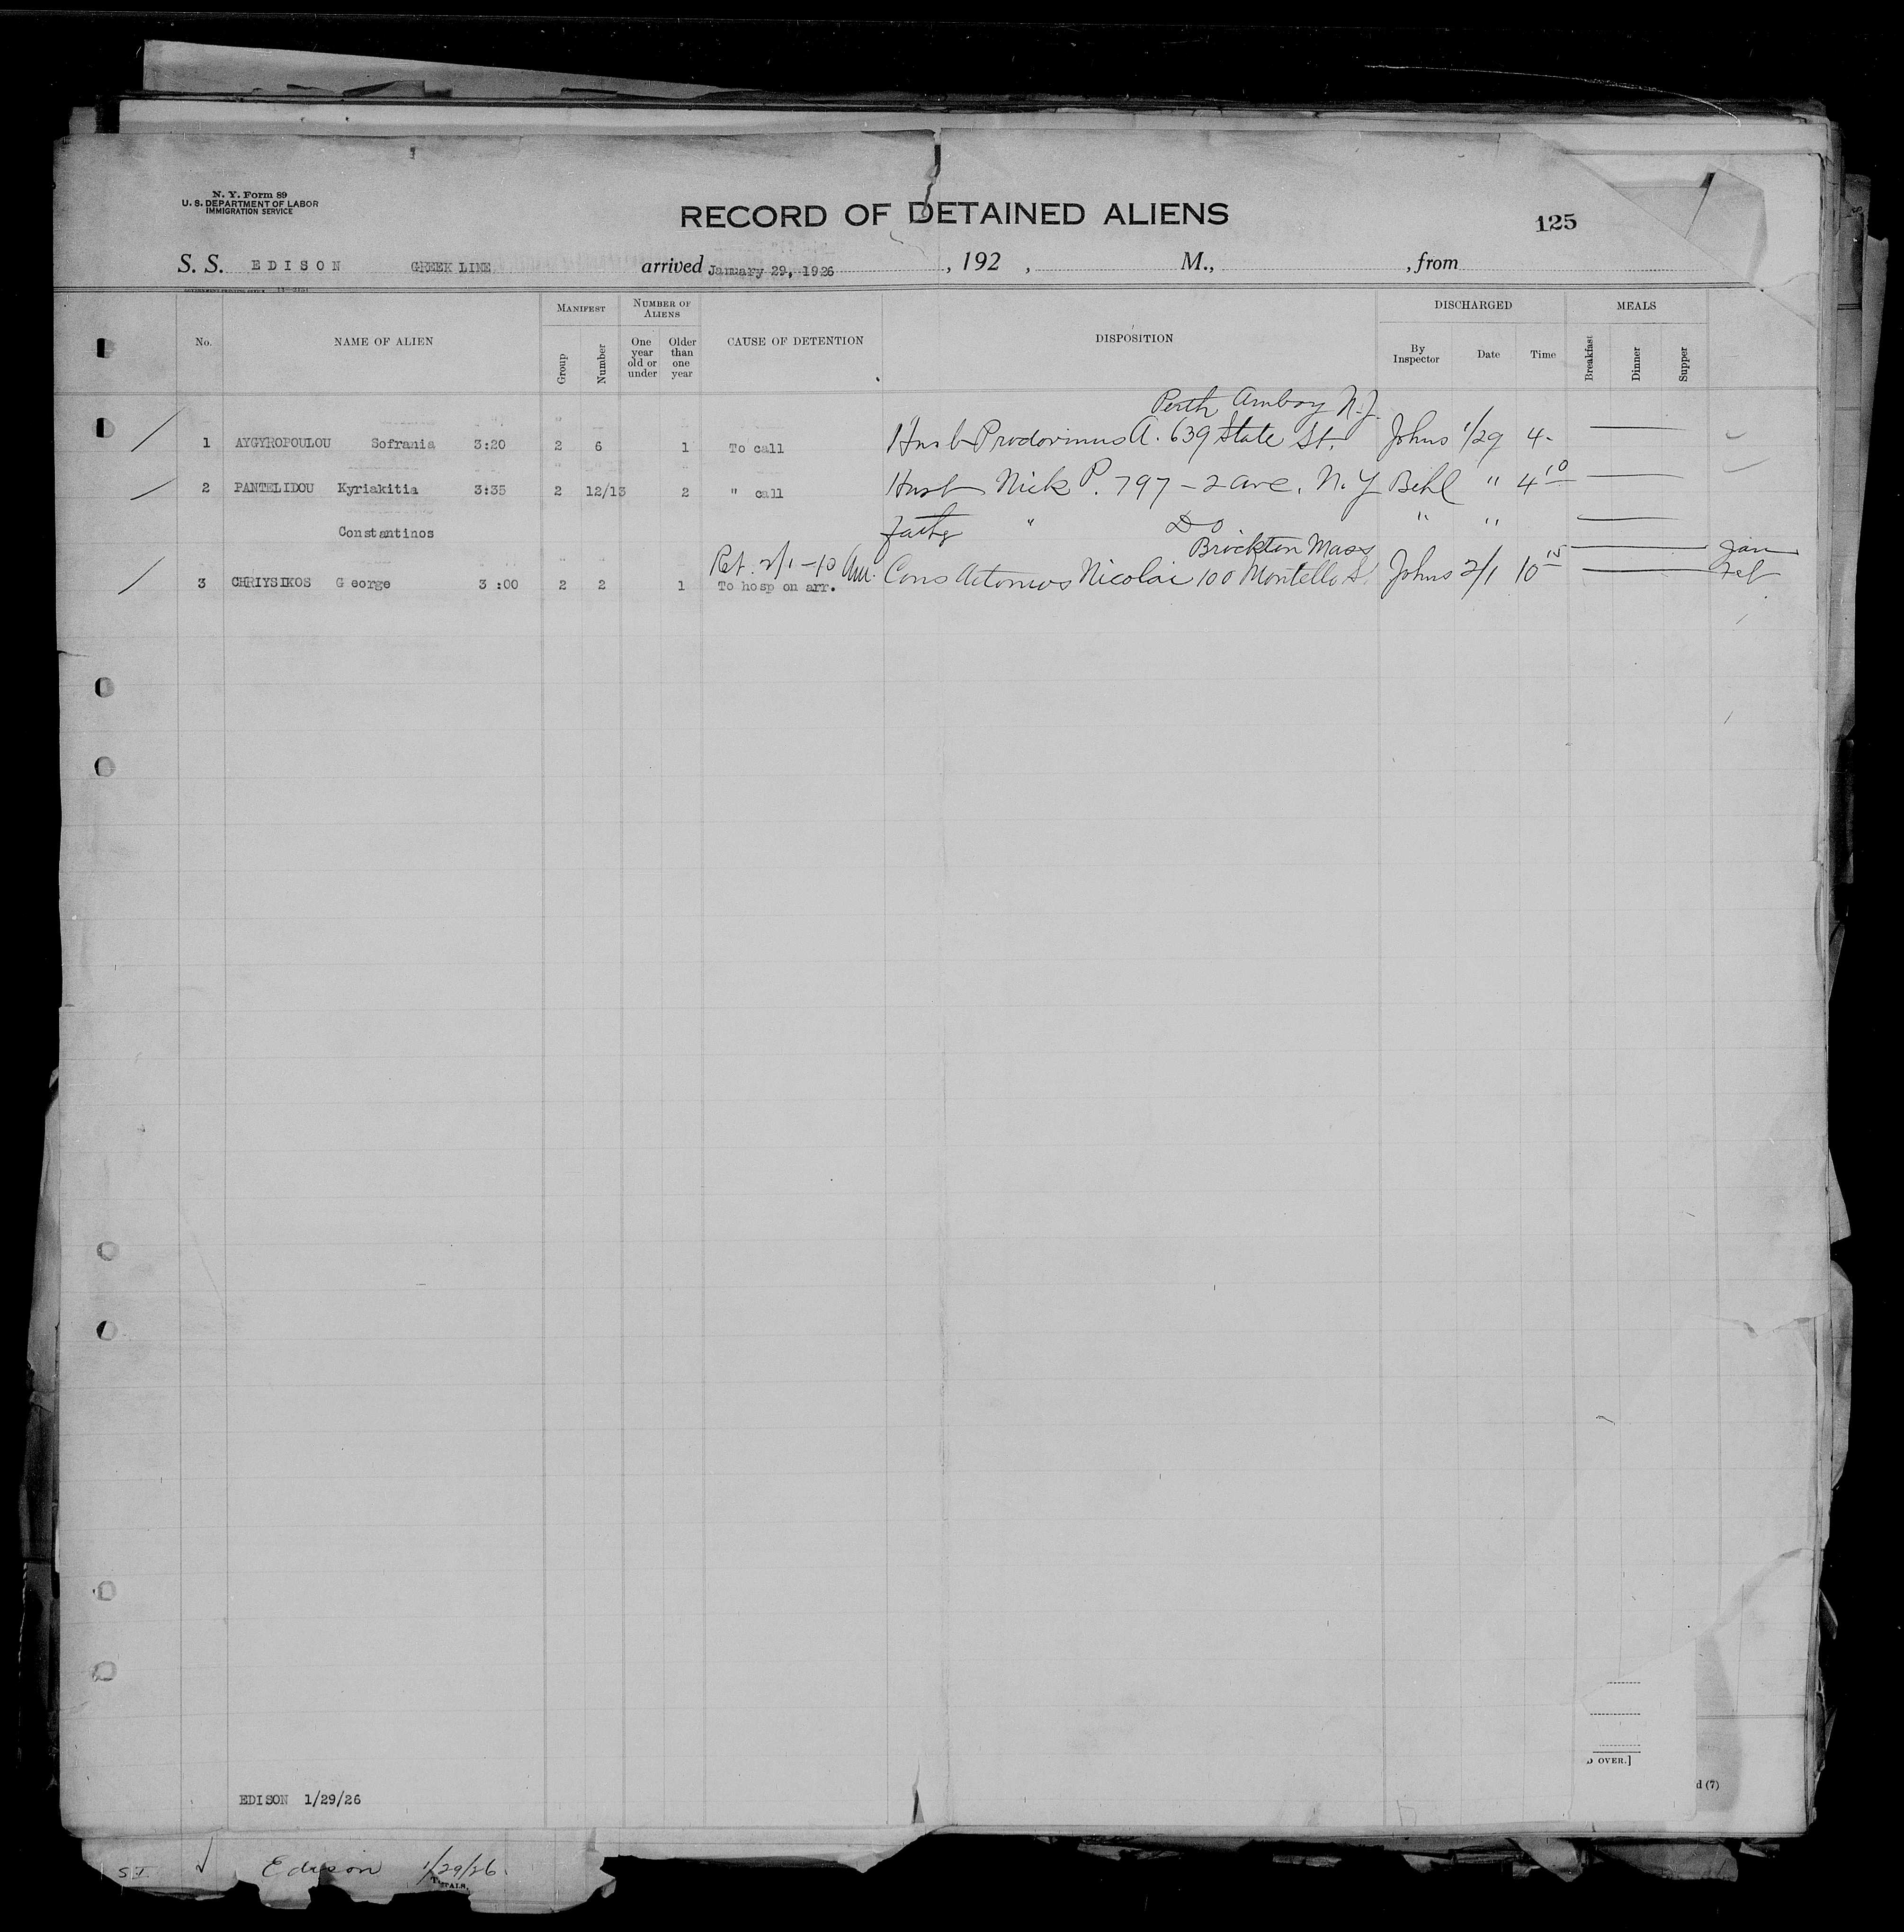 N. Y. Form 89
U. S. DEPARTMENT OF LABOR
IMMIGRATION SERVICE
RECORD OF DETAINED ALIENS
125
S. S. EDISON GREEK LINE arrived January 29, 1926, 192 , M., , from
No. NAME OF ALIEN MANIFEST Group Number NUMBER OF ALIENS One year old or under Older than one year CAUSE OF DETENTION DISPOSITION DISCHARGED By Inspector Date Time MEALS Breakfast Dinner Supper
Perth Amboy N.J.
1 AYGYROPOULOU Sofrania 3:20 2 6 1 To call Husb A. 639 State St. Johns 1/29 4-
2 PANTELIDOU Kyriakitia 3:35 2 12/13 2 " call Husb Nick P. 797-2 ave. N.Y Behl " 4 10
Constantinos " Do " "
Brockton Mass Jan
Ret. 2/1-10 Am.
3 CHRIYSIKOS G eorge 3 :00 2 2 1 To hosp on arr. Cous Nicolai 100 Montello St. Johns 2/1 10 15 Feb
OVER.]
d (7)
EDISON 1/29/26
S I Edison 1/29/26.
TOTALS.